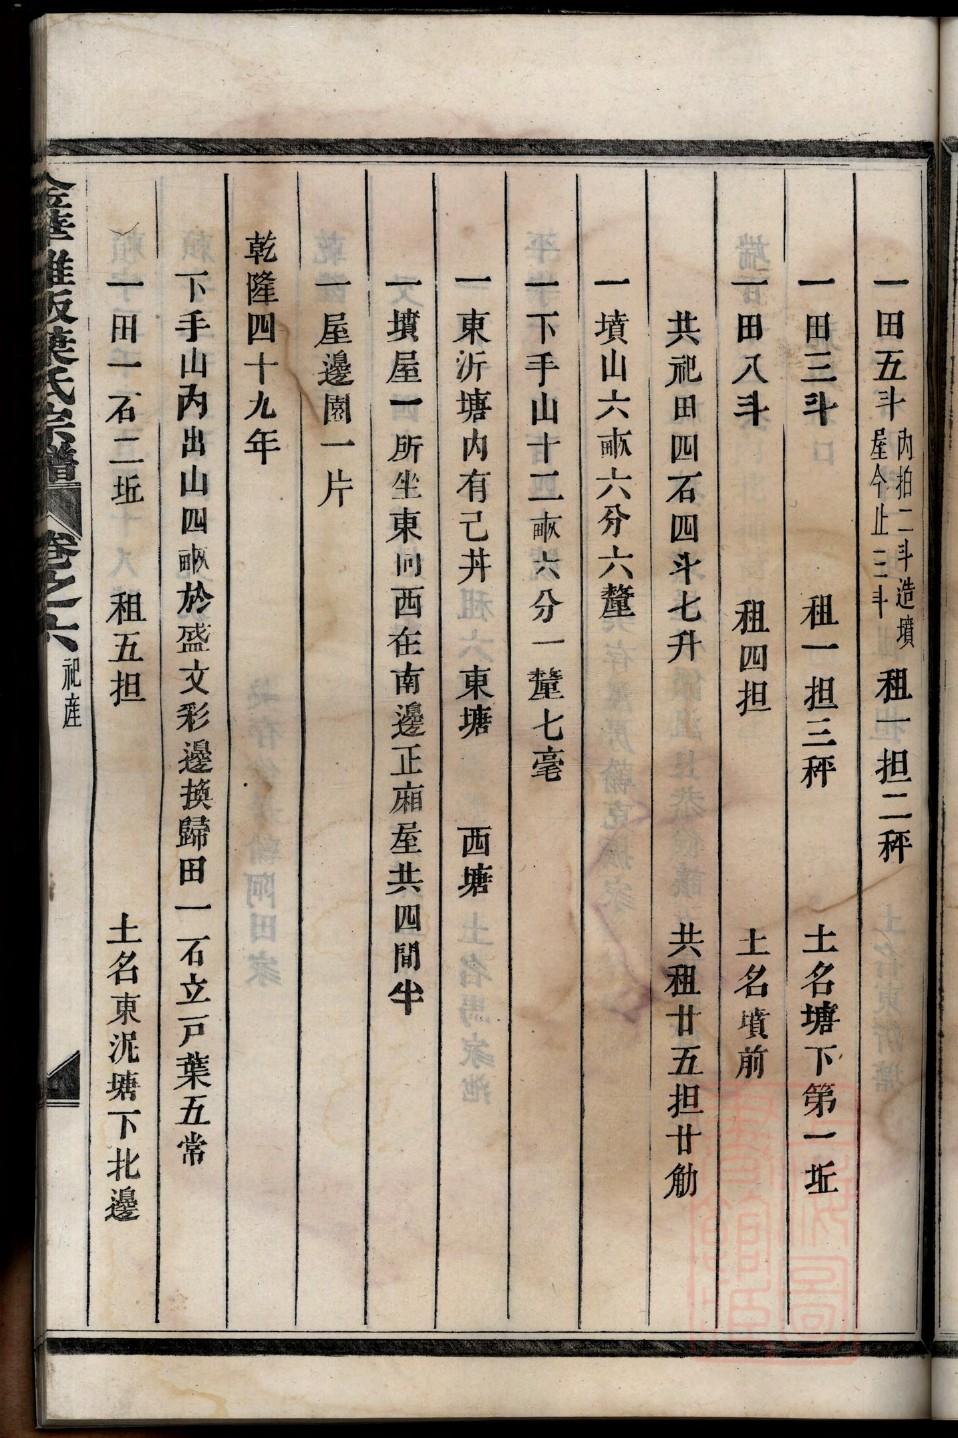 一田五斗 內拍二斗造墳屋今止三斗 租一担二秤
一田三斗 租一担三秤 土名塘下第一坵
一田八斗 租四担 土名墳前
共祀田四石四斗七升 共租廿五担廿觔
一墳山六畝六分六釐
一下手山十二畝六分一釐七毫
一東沂塘內有己丼 東塘 西塘
一墳屋一所坐東向西在南邊正廂屋共四間半
一屋邊園一片
乾隆四十九年
下手山內出山四畝於盛文彩邊換歸田一石立戸葉五常
一田一石二坵 租五担 土名東泥塘下北邊
葉氏宗譜 卷之六 祀産